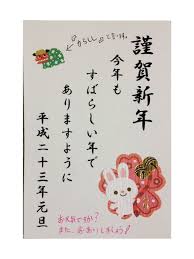 謹賀新年
今年も
すばらしい年で
ありますように
平成二十三年元旦
お元気ですか?
また、おあいしましょう!